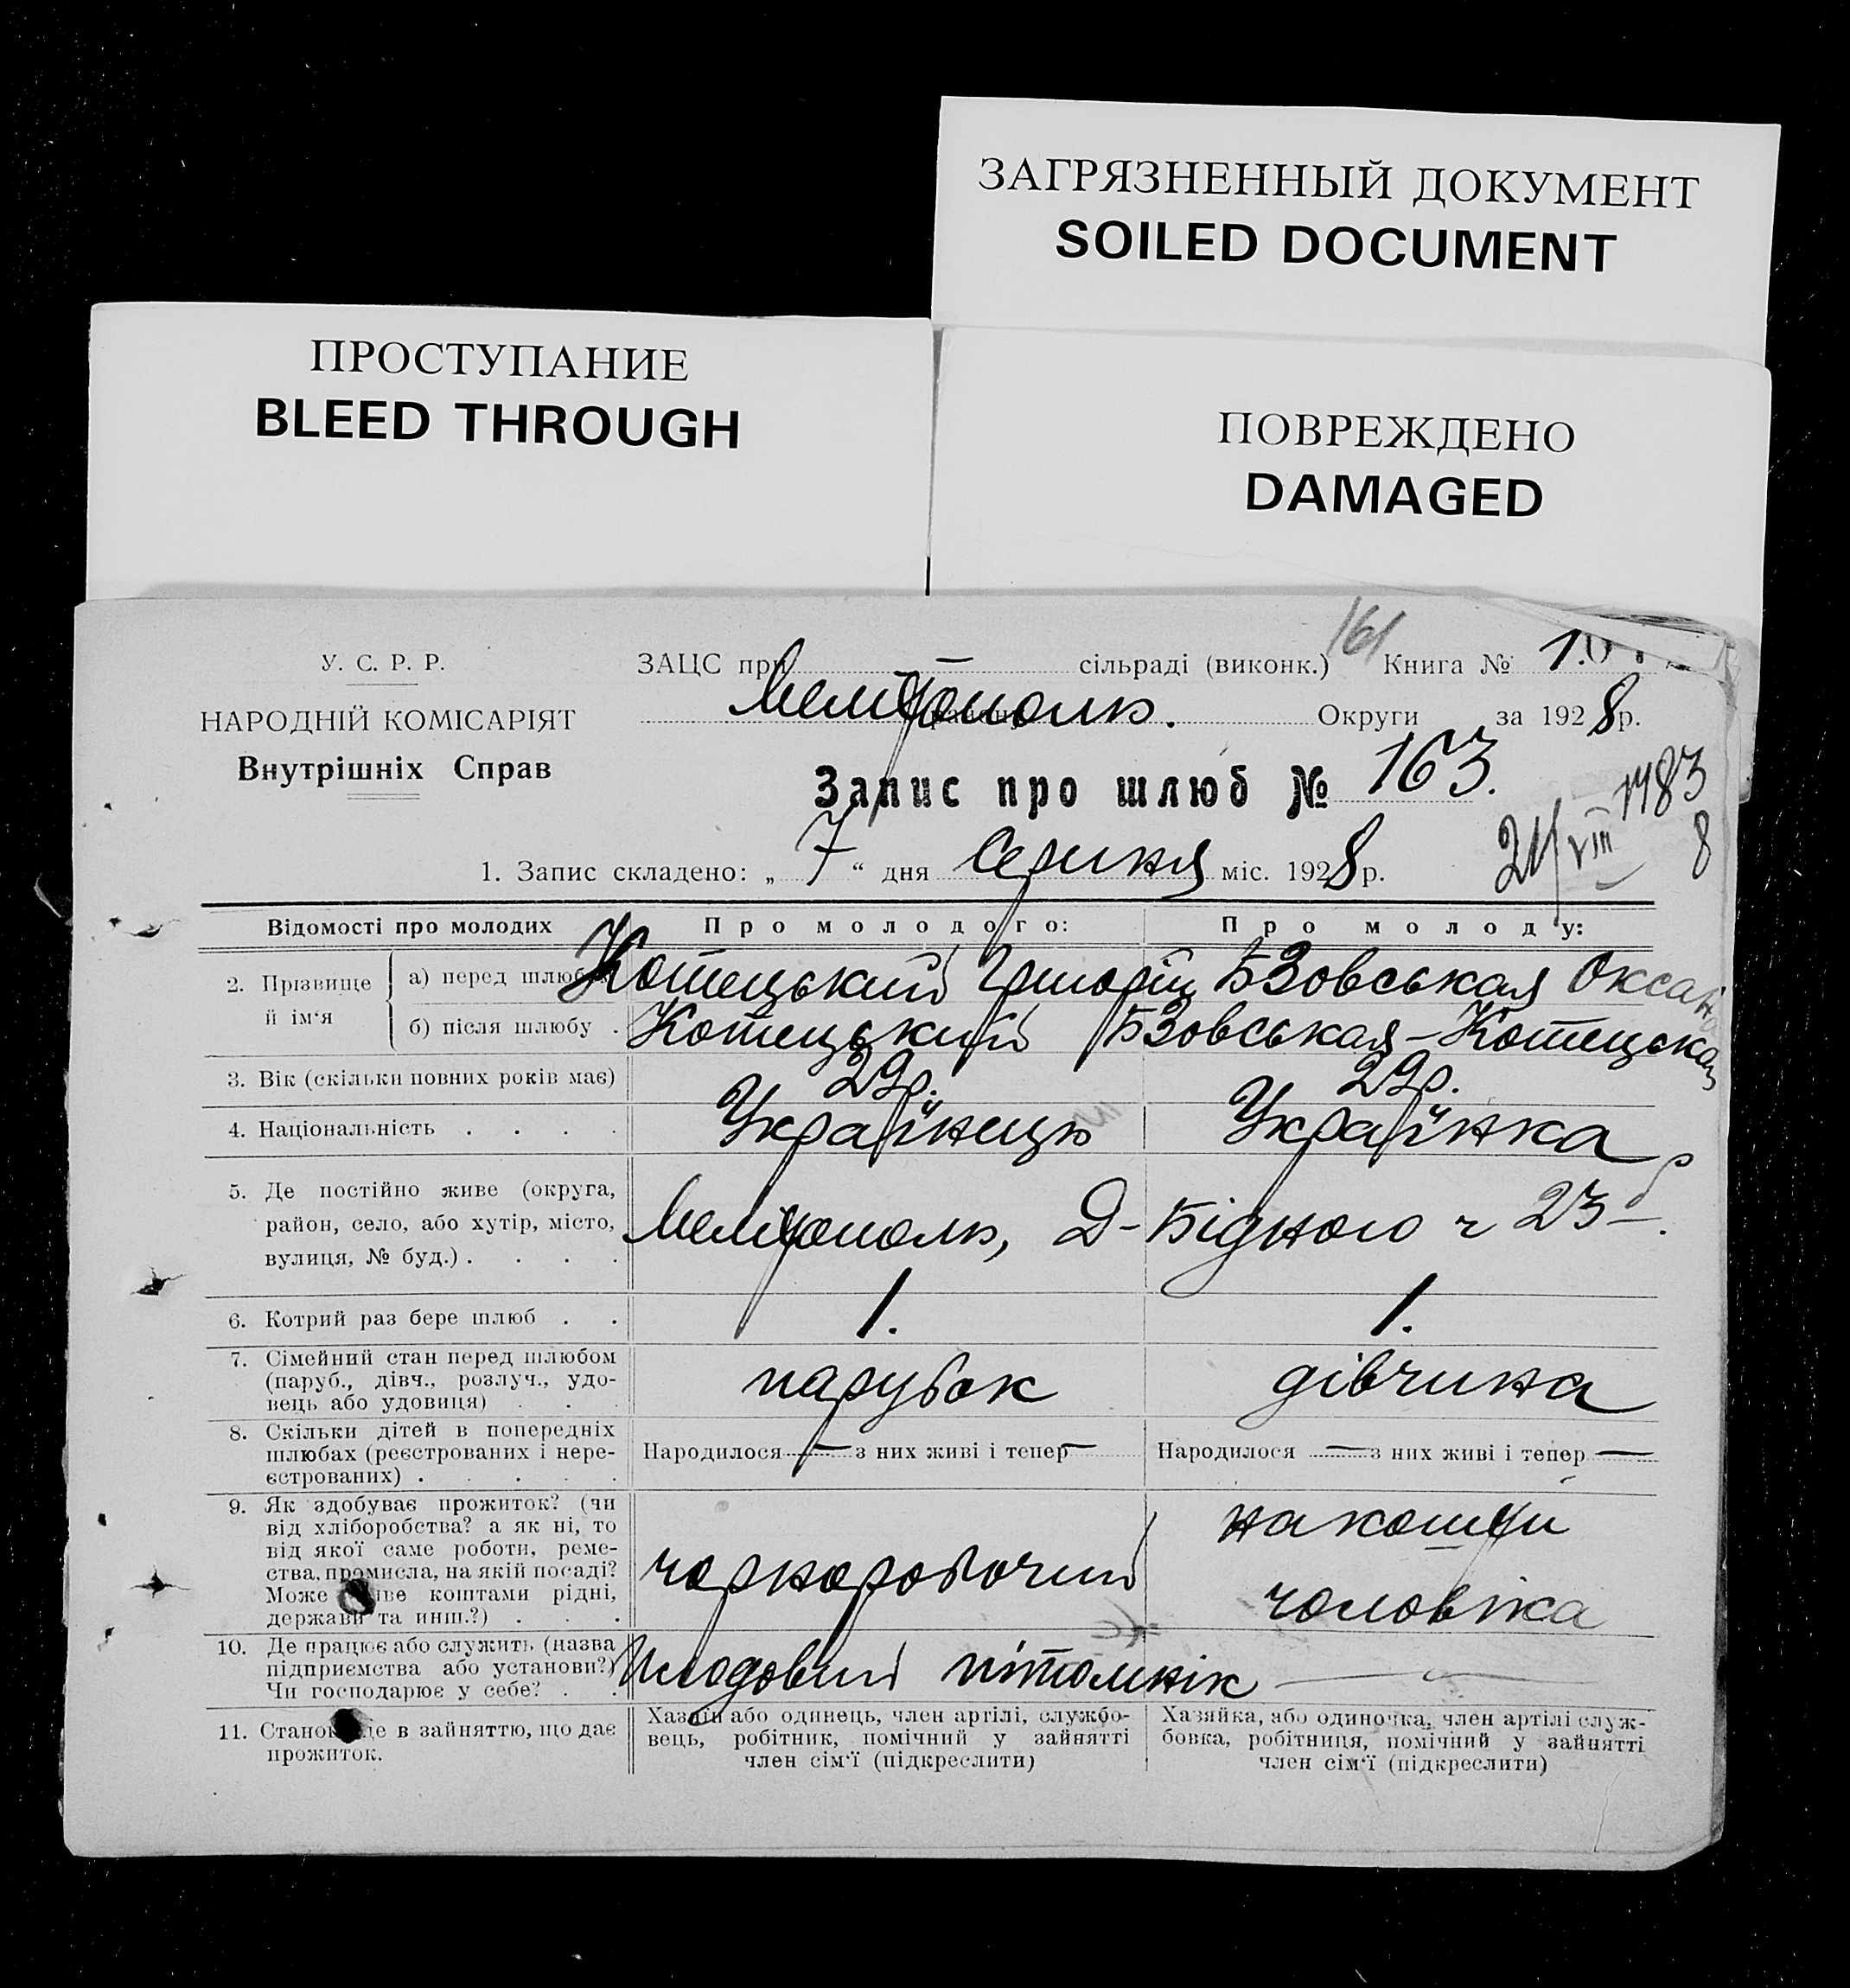 ЗАГРЯЗНЕННЫЙ ДОКУМЕНТ
SOILED DOCUMENT
ПРОСТУПАНИЕ
BLEED THROUGH
ПОВРЕЖДЕНО
DAMAGED
161
У. С. Р. Р.
НАРОДНІЙ КОМІСАРІЯТ
Внутрішніх Справ
ЗАЦС при — сільраді (виконк.) Книга № 1.
Мелітополь. Округи за 1928 р.
Запис про шлюб № 163.
1783
21/VIII 8
1. Запис складено: „ 7 “ дня Серпня міс. 1928 р.
Відомості про молодих Про молодого: Про молоду:
2. Прізвище й ім‘я
а) перед шлюб Котецький Григорій БЗовськая Оксана
б) після шлюбу . Котецький БЗовськая-Котецькая
3. Вік (скільки повних років має) 29р. 29р.
4. Національність . . . . Українець Українка
5. Де постійно живе (округа,
район, село, або хутір, місто,
вулиця, № буд.) . . . .
Мелітополь, Д-Бідного ч 23
6. Котрий раз бере шлюб . . 1. 1.
7. Сімейний стан перед шлюбом
(паруб., дівч., розлуч., удо-
вець або удовиця) . . .
парубок дівчина
8. Скільки дітей в попередніх
шлюбах (реєстрованих і нере-
єстрованих) . . . . .
Народилося — з них живі і тепер — Народилося — з них живі і тепер —
9. Як здобуває прожиток? (чи
від хліборобства? а як ні, то
від якої саме роботи, реме-
ства, промисла, на якій посаді?
Може живе коштами рідні,
держави та инш.?) . . .
чорноробочий
на кошти
чоловіка
10. Де працює або служить (назва
підприємства або установи?)
Чи господарює у себе? . .
Плодовий пітомнік —
11. Становище в зайняттю, що дає
прожиток.
Хазяїн або одинець, член артілі, службо-
вець, робітник, помічний у зайнятті
член сім‘ї (підкреслити)
Хазяйка, або одиночка, член артілі служ-
бовка, робітниця, помічний у зайнятті
член сім‘ї (підкреслити)